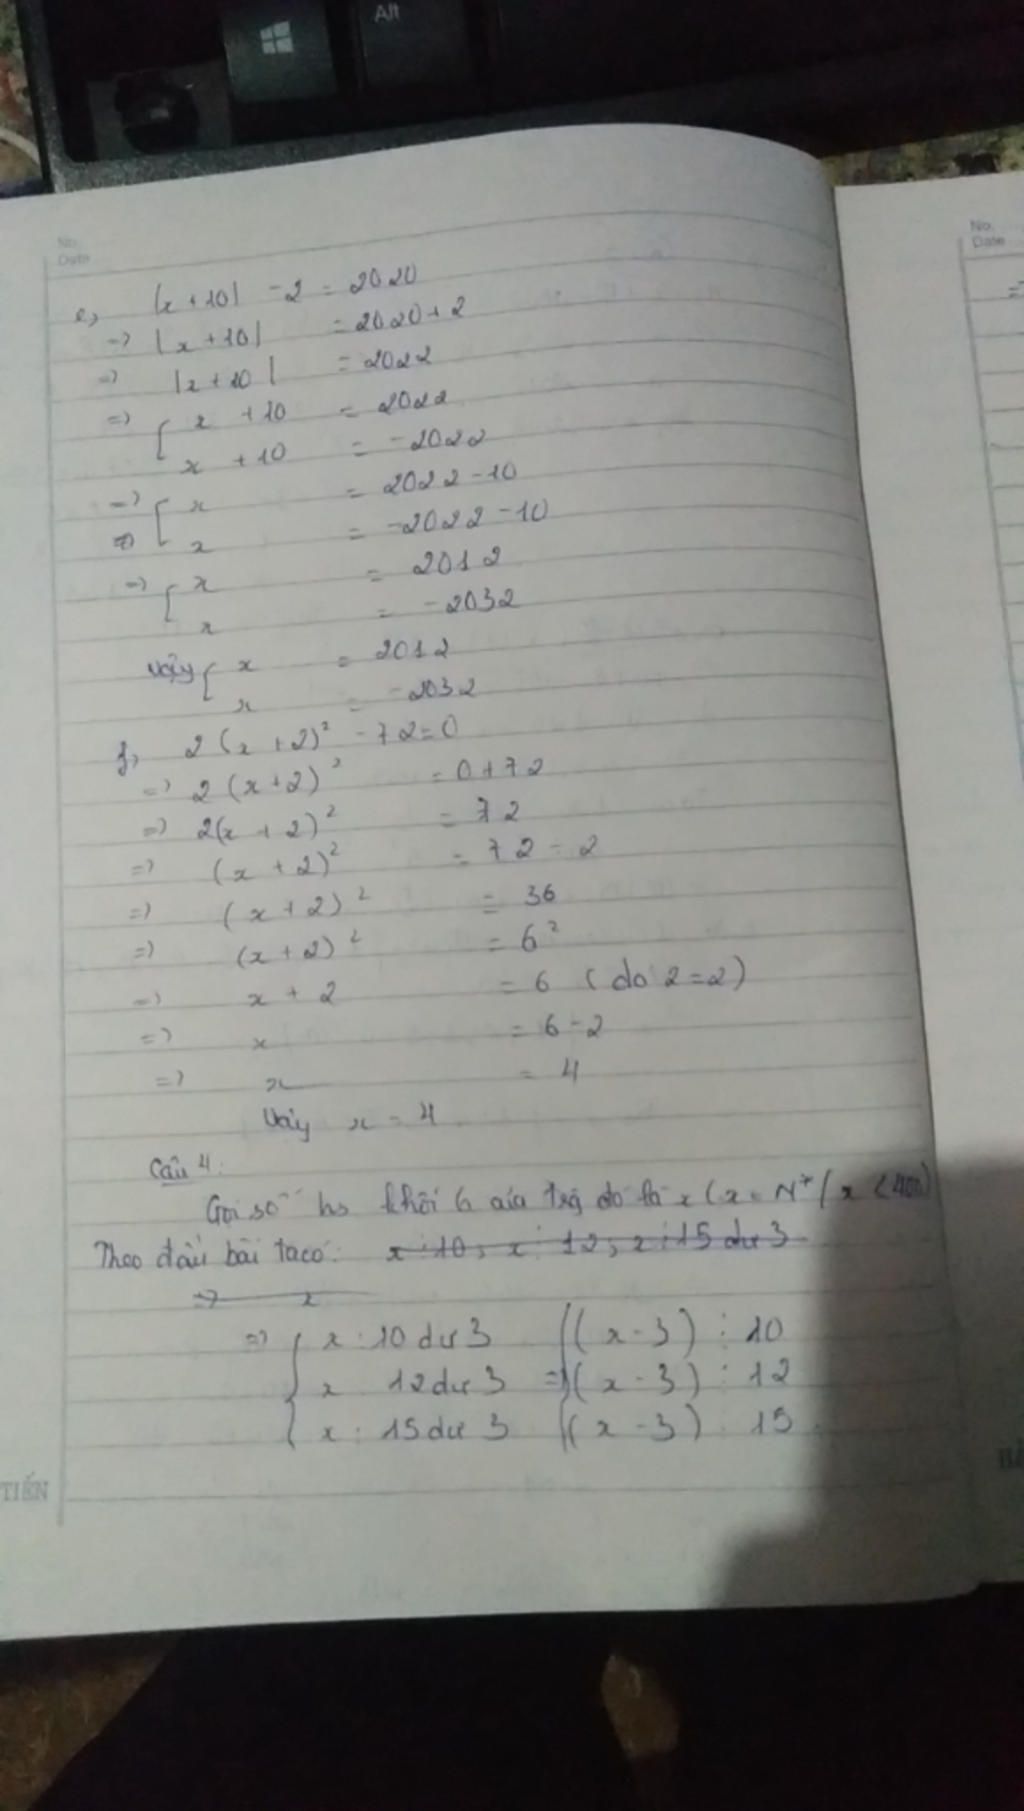 Alt
No.
Date
No.
Date
e, |x + 10| - 2 = 2020
=> |x + 10| = 2020 + 2
=> |x + 10| = 2022
=> [ x + 10 = 2022
x + 10 = -2022
=> [ x = 2022 - 10
=> x = -2022 - 10
=> [ x = 2012
x = -2032
Vậy [ x = 2012
x = -2032
f, 2(x + 2)² - 72 = 0
=> 2(x + 2)² = 0 + 72
=> 2(x + 2)² = 72
=> (x + 2)² = 72 : 2
=> (x + 2)² = 36
=> (x + 2)² = 6²
=> x + 2 = 6 (do 2 = 2)
=> x = 6 - 2
=> x = 4
Vậy x = 4
Câu 4:
Gọi số hs khối 6 của trg đó là x (x ∈ N* / x < 400)
Theo đầu bài ta có: x : 10, x : 12, x : 15 dư 3
=> x
=> { x : 10 dư 3 { (x - 3) ⋮ 10
x 12 dư 3 => (x - 3) ⋮ 12
x : 15 dư 3 (x - 3) ⋮ 15
TIẾN